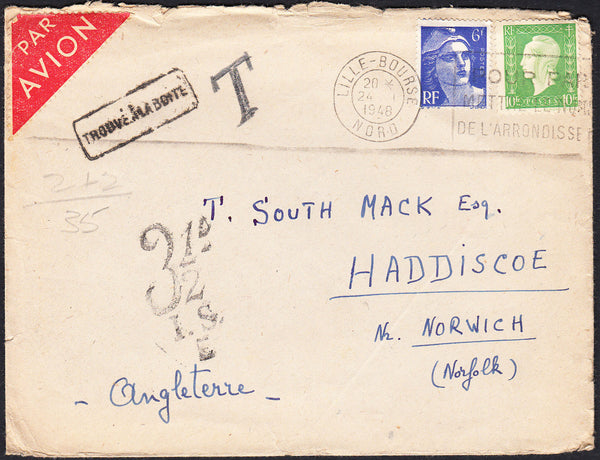 PAR
AVION
TROUVÉ À LA BOITE
T
LILLE-BOURSE
20
24 - 1
1948
NORD
6F
POSTES
RF
RF
10F POSTES 10F
POUR PARIS
METTRE LE
DE L'ARRONDISSE
2+2
35
3 1/2 D
I.S.
E
T. SOUTH MACK Esq.
HADDISCOE
Nr. NORWICH
(Norfolk)
- Angleterre -